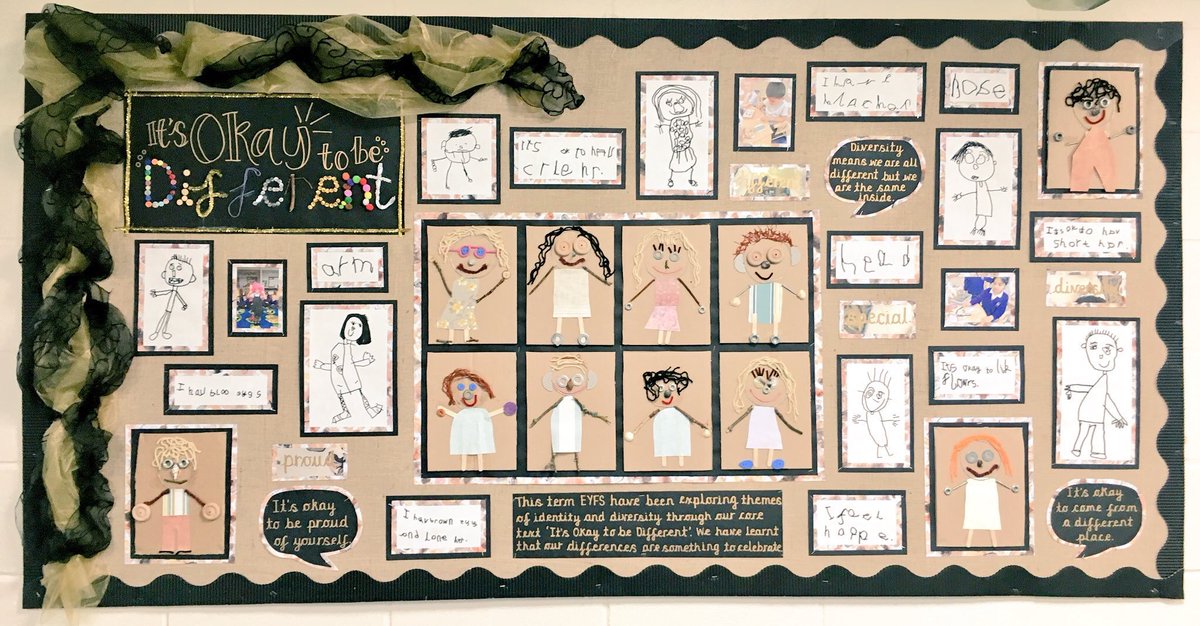 It's Okay to be
Different
It's
to
I have
nose
Diversity
means we are all
different but we
are the same
inside.
arm
head
It's ok to hav
short her.
diversi
special
I hav bloo
It's okay to lik
proud
It's okay
to be proud
of yourself.
I hav brown
and
This term EYFS have been exploring themes
of identity and diversity through our core
text 'It's Okay to be Different'. We have learnt
that our differences are something to celebrate
I feel
happe.
It's okay
to come from
a different
place.